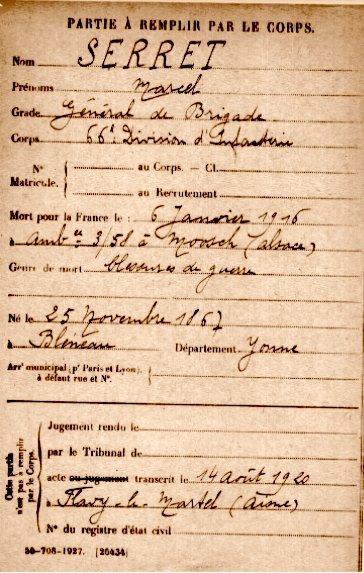 PARTIE À REMPLIR PAR LE CORPS.
Nom SERRET
Prénoms Marcel
Grade Général de Brigade
Corps 66e Division d'Infanterie
N° Matricule. { au Corps. — Cl.
au Recrutement
Mort pour la France le : 6 Janvier 1916
à ambce 3/58 à Moosch (Alsace)
Genre de mort blessures de guerre
Né le 25 Novembre 1867
à Bléneau Département Yonne
Arrt municipal (pr Paris et Lyon), à défaut rue et N°.
Cette partie n'est pas à remplir par le Corps.
Jugement rendu le
par le Tribunal de
acte ou jugement transcrit le 14 août 1920
à Flavy-le-Martel (Aisne)
N° du registre d'état civil
50-708-1927. [26434]